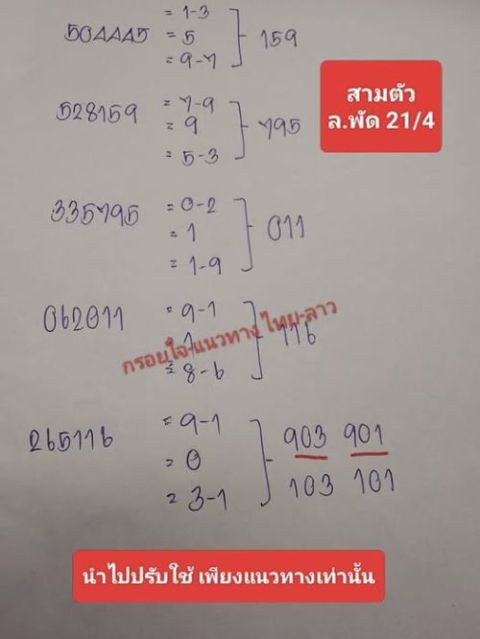 = 1-3
504445 = 5 159
= 9-7
สามตัว
ล.พัด 21/4
= 7-9
528159 = 9 795
= 5-3
= 0-2
335795 = 1 011
= 1-9
= 9-1
062011 = 1 116
= 8-6
กรอยใจ-แนวทาง ไทย-ลาว
= 9-1 903 901
265116 = 0
= 3-1 103 101
นำไปปรับใช้ เพียงแนวทางเท่านั้น